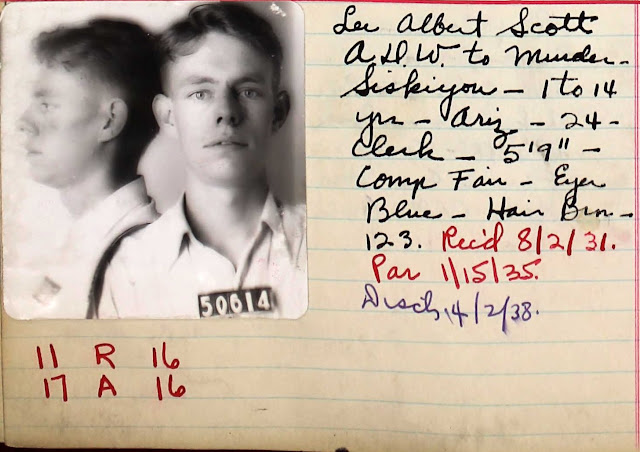 Lee Albert Scott
A.D.W. to Murder -
Siskiyou - 1 to 14
yrs - Ariz - 24 -
Clerk - 5'9" -
Comp Fair - Eyes
Blue - Hair Brn -
123. Rec'd 8/2/31.
Par 1/15/35.
Disch 4/2/38.
50614
11 R 16
17 A 16